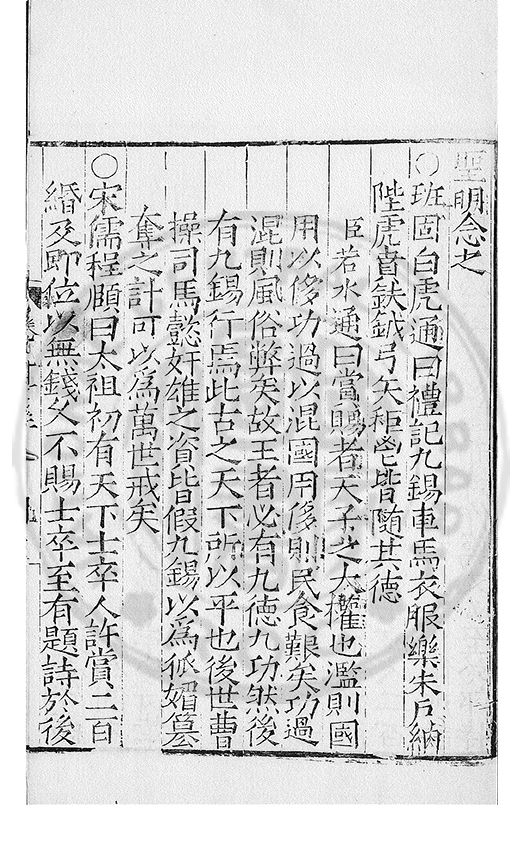 聖明念之
○班固白虎通曰禮記九錫車馬衣服樂朱戶納
陛虎賁鈇鉞弓矢秬鬯皆隨其德
臣若水通曰當賜者天子之大權也濫則國
用以侈功過以混國用侈則民食艱矣功過
混則風俗弊矣故王者必有九德九功然後
有九錫行焉此古之天下所以平也後世曹
操司馬懿奸雄之資皆假九錫以為狐媚簒
奪之計可以為萬世戒矣
○宋儒程頤曰太祖初有天下士卒人許賞二百
緡及即位以無錢久不賜士卒至有題詩於後